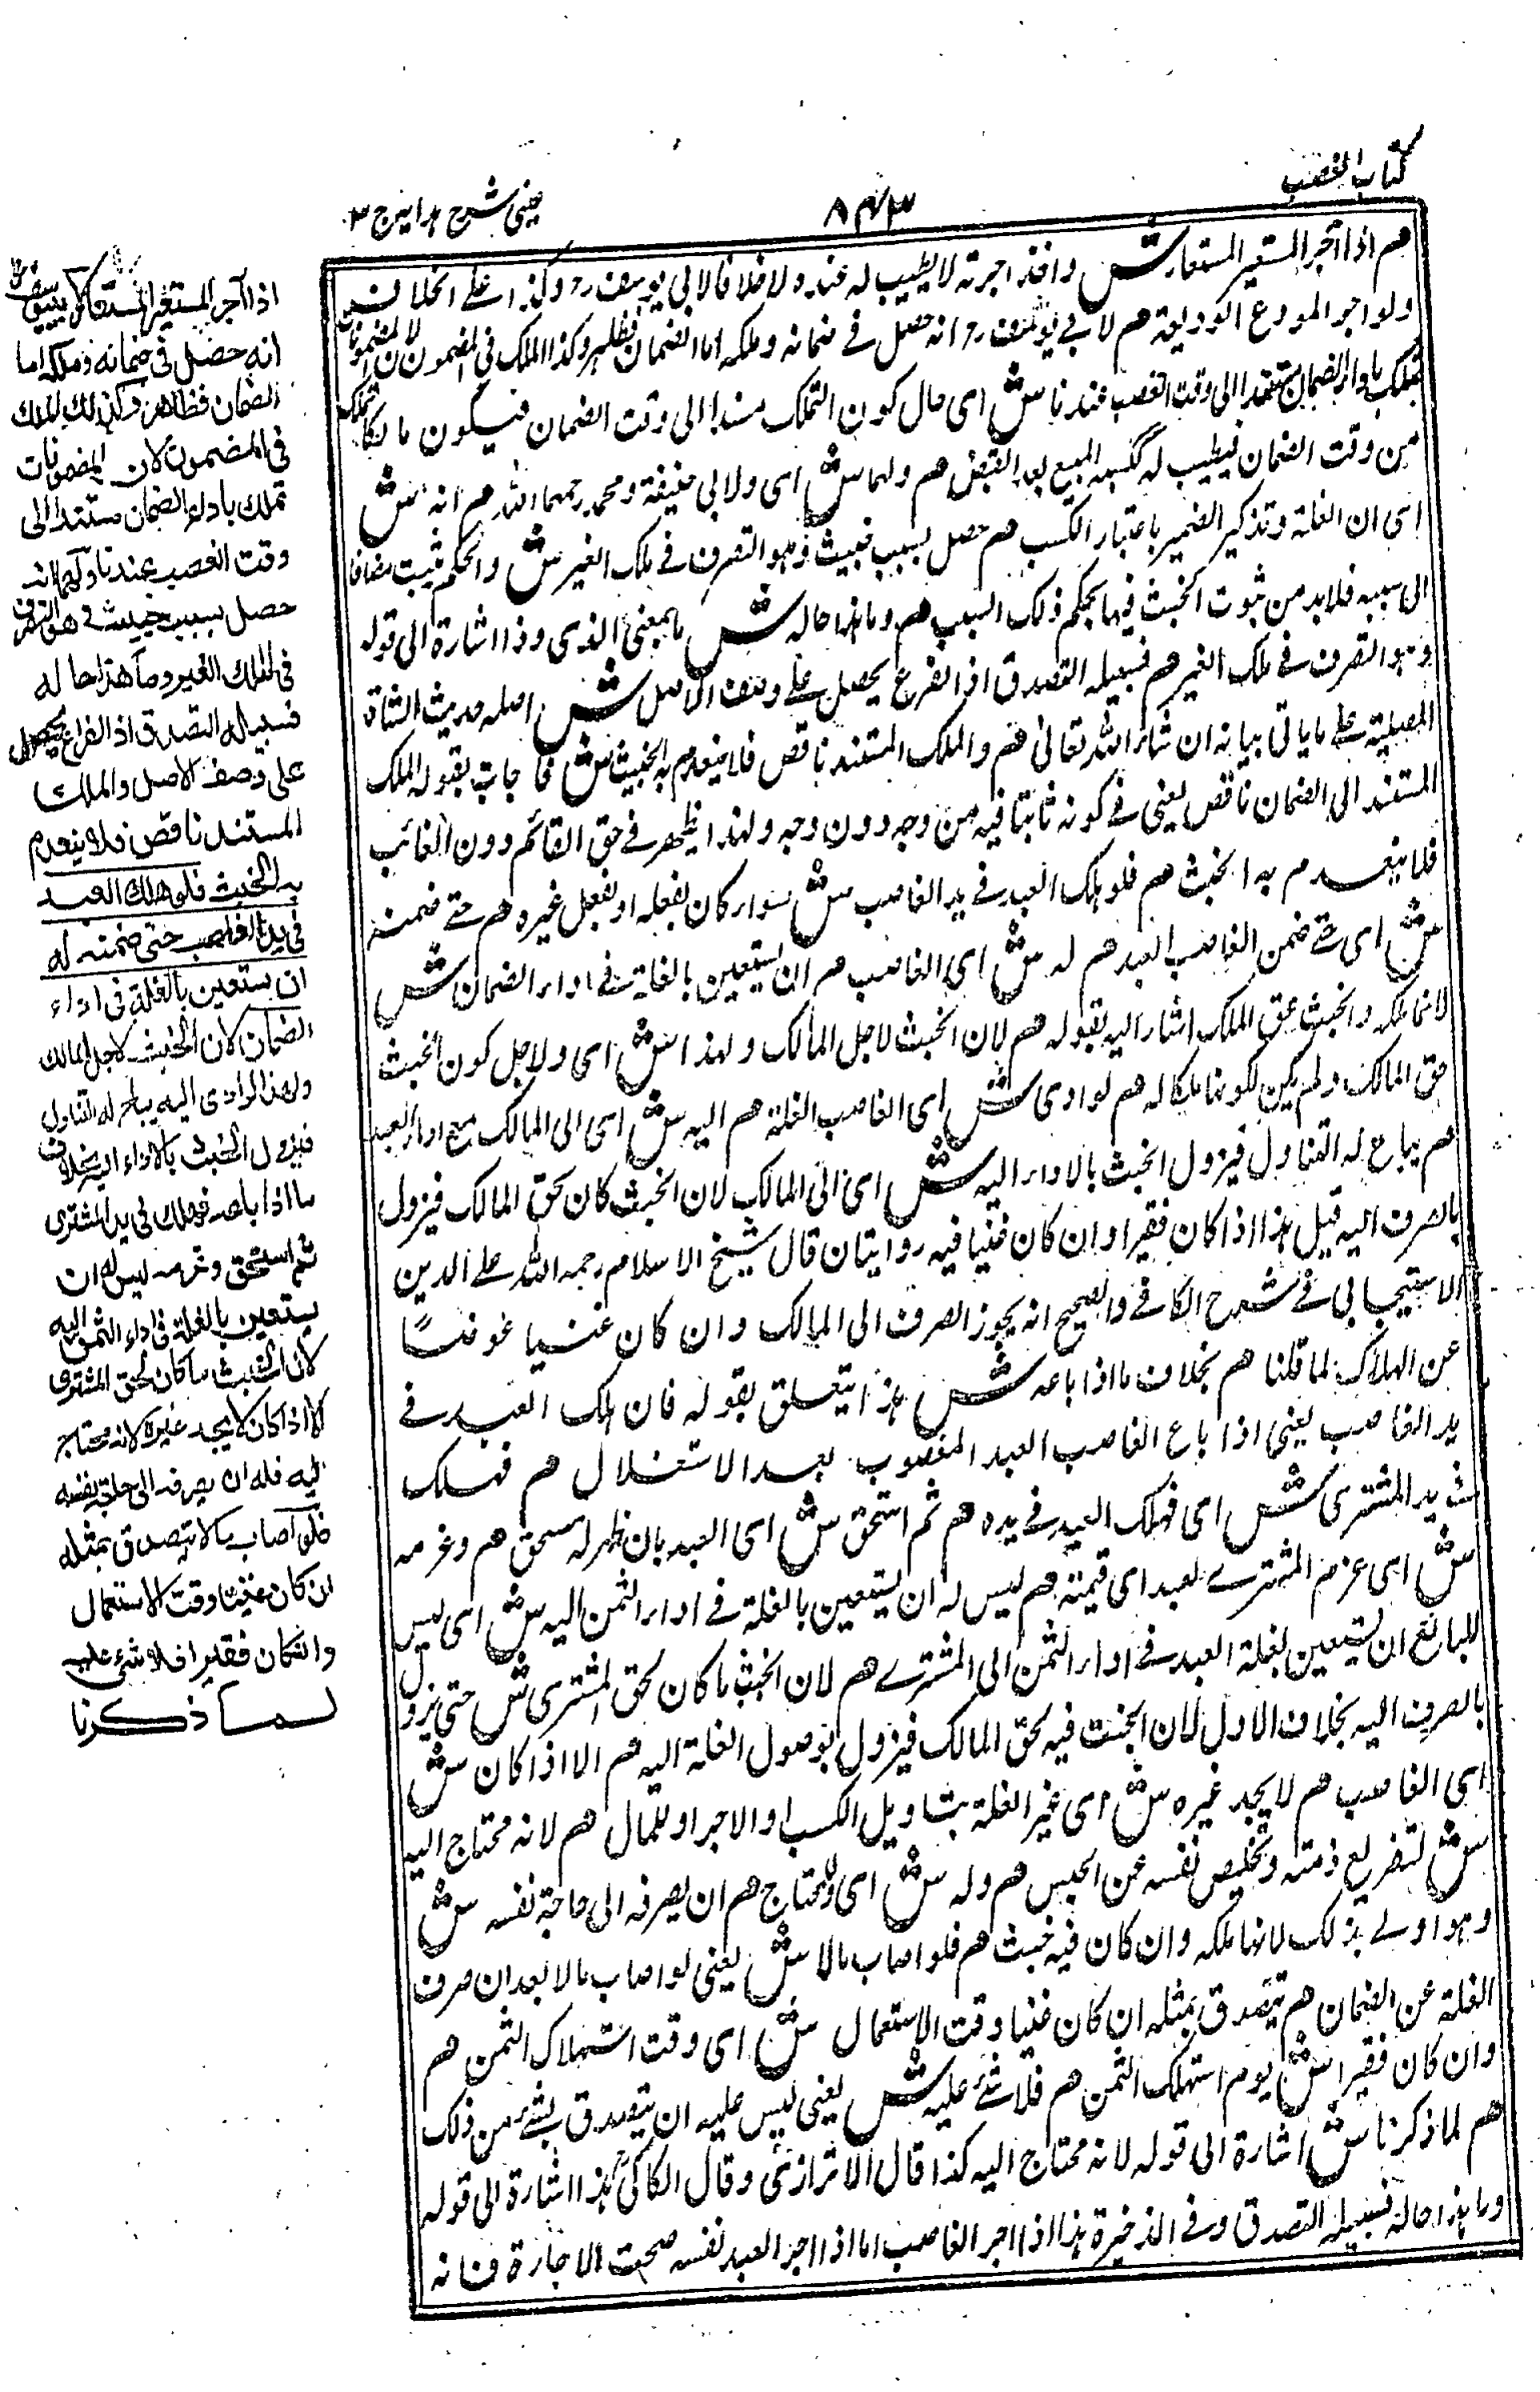 كتاب الغصب
٨٤٣
عينى شرح هدايه ج ٣
هم اذا آجر المستعير المستعار ش واخذ اجرته لا يطيب له عنده ولا خلافا لابي يوسف رح وكذا على الخلاف
ولو اجر المودع الوديعة هم لابي يوسف رح انه حصل في ضمانه وملكه اما الضمان فظاهر وكذا الملك في المضمون لان المضمونات
تملك باداء الضمان مستندا الى وقت الغصب عندنا ش اى حال كون التملك مستندا الى وقت الضمان فيكون مالكا
من وقت الضمان فيطيب له ككسب المبيع بعد القبض هم ولهما ش اى ولابي حنيفة ومحمد رحمهما الله هم انه ش
اى ان الغلة وتذكير الضمير باعتبار الكسب هم حصل بسبب خبيث وهو التصرف في ملك الغير ش والحكم يثبت مضافا
الى سببه فلا بد من ثبوت الخبث فيها بحكم ذلك السبب هم وما هذا حاله ش ما بمعنى الذى وذا اشارة الى قوله
وهو التصرف في ملك الغير هم فسبيله التصدق اذ الفرع يحصل على وصف الاصل ش اصله حديث الشاة
المصلية على ما ياتي بيانه ان شاء الله تعالى هم والملك المستند ناقص فلا ينعدم به الخبث ش فاجاب بقوله الملك
المستند الى الضمان ناقص يعنى في كونه ثابتا فيه من وجه دون وجه ولهذا يظهر في حق القائم دون الغائب
فلا ينعدم به الخبث هم فلو هلك العبد في يد الغاصب ش سواء كان بفعله او بفعل غيره هم حتى ضمنه
ش اى حتى ضمن الغاصب العبد هم له ش اى الغاصب هم ان يستعين بالغلة في اداء الضمان ش
لانها ملكه والخبث لحق الملك اشار اليه بقوله هم لان الخبث لاجل المالك ولهذا ش اى ولاجل كون الخبث
حق المالك ولم يكن لكونها ملكا له هم لو ادى ش اى الغاصب الغلة هم اليه ش اى الى المالك مع اداء العبد
هم يباح له التناول فيزول الخبث بالاداء اليه ش اى الى المالك لان الخبث كان لحق المالك فيزول
بالصرف اليه قيل هذا اذا كان فقيرا وان كان غنيا فيه روايتان قال شيخ الاسلام رحمه الله على الدين
الاسبيجابى في شرح الكافي والصحيح انه يجوز الصرف الى المالك وان كان غنيا عوضا
عن الهلاك لما قلنا هم بخلاف ما اذا باعه ش هذا يتعلق بقوله فان هلك العبد في
يد الغاصب يعنى اذا باع الغاصب العبد المغصوب بعد الاستغلال هم فهلك
في يد المشترى ش اى فهلك العبد في يده هم ثم استحق ش اى العبد بان ظهر له مستحق هم وغرمه
ش اى غرم المشترى العبد اى قيمته هم ليس له ان يستعين بالغلة في اداء الثمن اليه ش اى ليس
للبائع ان يستعين بغلة العبد في اداء الثمن الى المشترى هم لان الخبث ما كان لحق المشترى ش حتى يزول
بالصرف اليه بخلاف الاول لان الخبث فيه لحق المالك فيزول بوصول الغلة اليه هم الا اذا كان ش
اى الغاصب هم لا يجد غيره ش اى غير الغلة بتاويل الكسب او الاجر او للمال هم لانه محتاج اليه
ش لتفريغ ذمته وتخليص نفسه عن الحبس هم وله ش اى وللمحتاج هم ان يصرفه الى حاجة نفسه ش
وهو اولى بذلك لانها ملكه وان كان فيه خبث هم فلو اصاب مالا ش يعنى لو اصاب مالا بعد ان صرف
الغلة عن الضمان هم يتصدق بمثله ان كان غنيا وقت الاستعمال ش اى وقت استهلاك الثمن هم
وان كان فقيرا ش يوم استهلك الثمن هم فلا شئ عليه ش يعنى ليس عليه ان يتصدق بشئ من ذلك
هم لما ذكرنا ش اشارة الى قوله لانه محتاج اليه كذا قال الاترازى وقال الكاكى هذا اشارة الى قوله
وما هذا حاله فسبيله التصدق وفي الذخيرة هذا اذا اجر الغاصب اما اذا اجر العبد نفسه صحت الاجارة فانه
اذا آجر المستعير المستعار لابي يوسف رح
انه حصل في ضمانه وملكه اما
الضمان فظاهر وكذلك الملك
في المضمون لان المضمونات
تملك باداء الضمان مستندا الى
وقت الغصب عندنا ولهما انه
حصل بسبب خبيث وهو التصرف
في الملك الغير وما هذا حاله
فسبيله التصدق اذ الفرع يحصل
على وصف الاصل والملك
المستند ناقص فلا ينعدم
به الخبث فلو هلك العبد
في يد الغاصب حتى ضمنه له
ان يستعين بالغلة في اداء
الضمان لان الخبث لاجل المالك
ولهذا لو ادى اليه يباح له التناول
فيزول الخبث بالاداء اليه بخلاف
ما اذا باعه فهلك في يد المشترى
ثم استحق وغرمه ليس له ان
يستعين بالغلة في اداء الثمن اليه
لان الخبث ما كان لحق المشترى
الا اذا كان لا يجد غيره لانه محتاج
اليه فله ان يصرفه الى حاجة نفسه
فلو اصاب مالا يتصدق بمثله
ان كان غنيا وقت الاستعمال
وان كان فقيرا فلا شئ عليه
لما ذكرنا